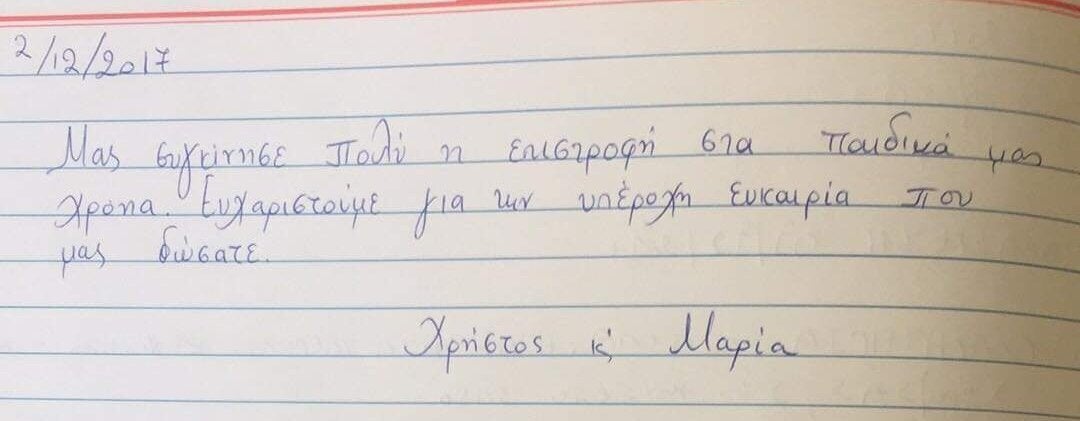 2/12/2017
Μας συγκίνησε πολύ η επιστροφή στα παιδικά μας
χρόνια. Ευχαριστούμε για την υπέροχη ευκαιρία που
μας δώσατε.
Χρήστος κ' Μαρία